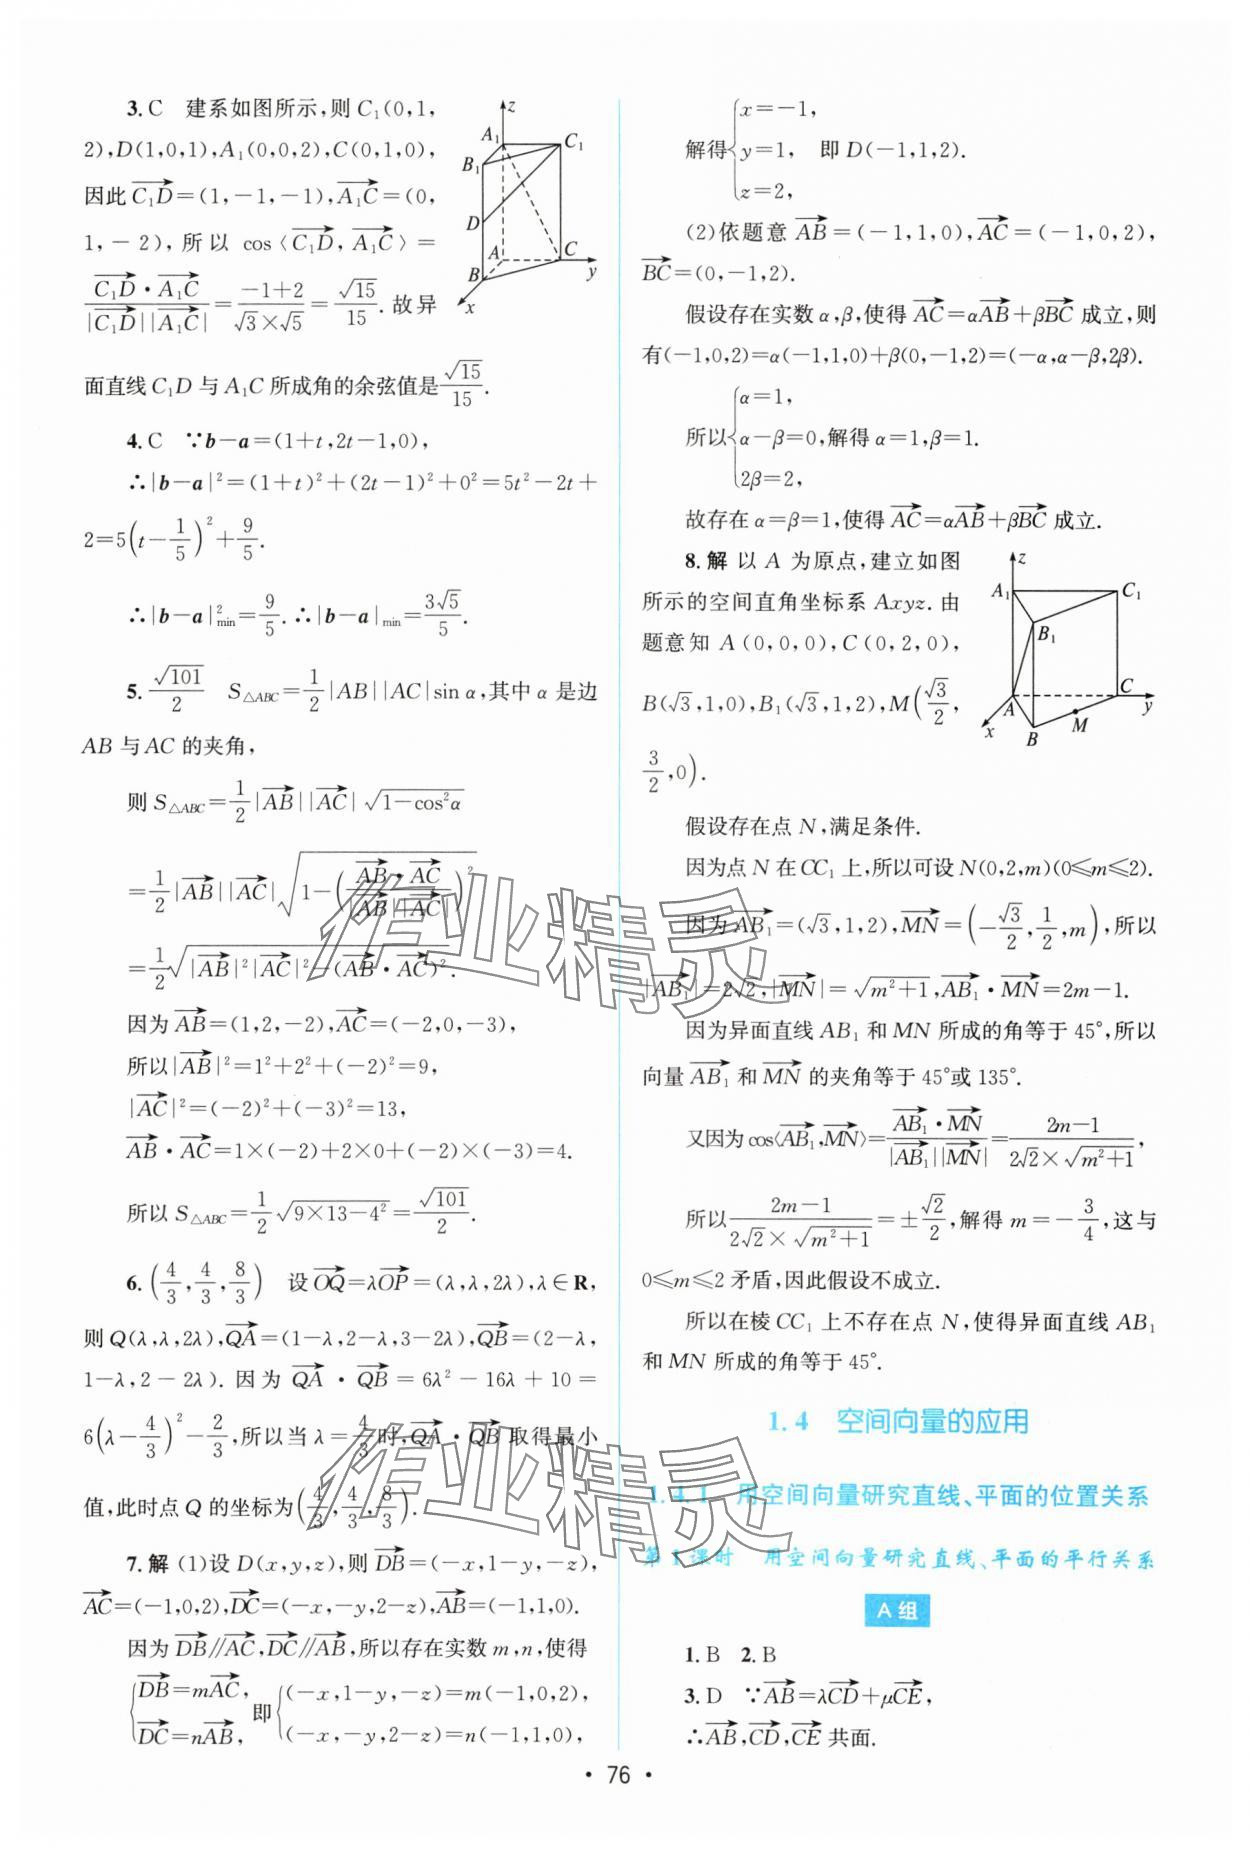 3.C 建系如图所示,则 C₁(0,1,
2),D(1,0,1),A₁(0,0,2),C(0,1,0),
因此 $\overrightarrow{C_1D}$=(1,-1,-1),$\overrightarrow{A_1C}$=(0,
1,-2),所以 cos⟨$\overrightarrow{C_1D}$,$\overrightarrow{A_1C}$⟩=
$\frac{\overrightarrow{C_1D}·\overrightarrow{A_1C}}{|\overrightarrow{C_1D}||\overrightarrow{A_1C}|}=\frac{-1+2}{\sqrt{3}×\sqrt{5}}=\frac{\sqrt{15}}{15}$.故异
面直线 C₁D 与 A₁C 所成角的余弦值是$\frac{\sqrt{15}}{15}$.
z
A₁
C₁
B₁
D
A
C
B
y
x
4.C ∵b-a=(1+t,2t-1,0),
∴|b-a|²=(1+t)²+(2t-1)²+0²=5t²-2t+
2=5$(t-\frac{1}{5})^2+\frac{9}{5}$.
∴|b-a|$^2_{min}$=$\frac{9}{5}$.∴|b-a|$_{min}$=$\frac{3\sqrt{5}}{5}$.
5.$\frac{\sqrt{101}}{2}$ S△ABC=$\frac{1}{2}$|AB||AC|sin α,其中 α 是边
AB 与 AC 的夹角,
则 S△ABC=$\frac{1}{2}|\overrightarrow{AB}||\overrightarrow{AC}|\sqrt{1-cos^2α}$
=$\frac{1}{2}|\overrightarrow{AB}||\overrightarrow{AC}|\sqrt{1-(\frac{\overrightarrow{AB}·\overrightarrow{AC}}{|\overrightarrow{AB}||\overrightarrow{AC}|})^2}$
=$\frac{1}{2}\sqrt{|\overrightarrow{AB}|^2|\overrightarrow{AC}|^2-(\overrightarrow{AB}·\overrightarrow{AC})^2}$.
因为 $\overrightarrow{AB}$=(1,2,-2),$\overrightarrow{AC}$=(-2,0,-3),
所以|$\overrightarrow{AB}$|²=1²+2²+(-2)²=9,
|$\overrightarrow{AC}$|²=(-2)²+(-3)²=13,
$\overrightarrow{AB}·\overrightarrow{AC}$=1×(-2)+2×0+(-2)×(-3)=4.
所以 S△ABC=$\frac{1}{2}\sqrt{9×13-4^2}=\frac{\sqrt{101}}{2}$.
6.$(\frac{4}{3},\frac{4}{3},\frac{8}{3})$ 设 $\overrightarrow{OQ}=λ\overrightarrow{OP}$=(λ,λ,2λ),λ∈R,
则 Q(λ,λ,2λ),$\overrightarrow{QA}$=(1-λ,2-λ,3-2λ),$\overrightarrow{QB}$=(2-λ,
1-λ,2-2λ).因为 $\overrightarrow{QA}·\overrightarrow{QB}$=6λ²-16λ+10=
6$(λ-\frac{4}{3})^2-\frac{2}{3}$,所以当 λ=$\frac{4}{3}$时,$\overrightarrow{QA}·\overrightarrow{QB}$ 取得最小
值,此时点 Q 的坐标为$(\frac{4}{3},\frac{4}{3},\frac{8}{3})$.
7.解 (1)设 D(x,y,z),则 $\overrightarrow{DB}$=(-x,1-y,-z),
$\overrightarrow{AC}$=(-1,0,2),$\overrightarrow{DC}$=(-x,-y,2-z),$\overrightarrow{AB}$=(-1,1,0).
因为 $\overrightarrow{DB}∥\overrightarrow{AC},\overrightarrow{DC}∥\overrightarrow{AB}$,所以存在实数 m,n,使得
$\begin{cases}\overrightarrow{DB}=m\overrightarrow{AC},\\\overrightarrow{DC}=n\overrightarrow{AB},\end{cases}$即$\begin{cases}(-x,1-y,-z)=m(-1,0,2),\\(-x,-y,2-z)=n(-1,1,0),\end{cases}$
解得$\begin{cases}x=-1,\\y=1,\\z=2,\end{cases}$ 即 D(-1,1,2).
(2)依题意 $\overrightarrow{AB}$=(-1,1,0),$\overrightarrow{AC}$=(-1,0,2),
$\overrightarrow{BC}$=(0,-1,2).
假设存在实数 α,β,使得 $\overrightarrow{AC}=α\overrightarrow{AB}+β\overrightarrow{BC}$ 成立,则
有(-1,0,2)=α(-1,1,0)+β(0,-1,2)=(-α,α-β,2β).
所以$\begin{cases}α=1,\\α-β=0,\\2β=2,\end{cases}$解得 α=1,β=1.
故存在 α=β=1,使得 $\overrightarrow{AC}=α\overrightarrow{AB}+β\overrightarrow{BC}$ 成立.
8.解 以 A 为原点,建立如图
所示的空间直角坐标系 Axyz.由
题意知 A(0,0,0),C(0,2,0),
B($\sqrt{3}$,1,0),B₁($\sqrt{3}$,1,2),M($\frac{\sqrt{3}}{2}$,
$\frac{3}{2}$,0).
z
A₁
C₁
B₁
A
C
y
x
B
M
假设存在点 N,满足条件.
因为点 N 在 CC₁ 上,所以可设 N(0,2,m)(0≤m≤2).
因为$\overrightarrow{AB_1}$=($\sqrt{3}$,1,2),$\overrightarrow{MN}$=$(-\frac{\sqrt{3}}{2},\frac{1}{2},m)$,所以
|$\overrightarrow{AB_1}$|=2$\sqrt{2}$,|$\overrightarrow{MN}$|=$\sqrt{m^2+1}$,$\overrightarrow{AB_1}·\overrightarrow{MN}$=2m-1.
因为异面直线 AB₁ 和 MN 所成的角等于 45°,所以
向量 $\overrightarrow{AB_1}$ 和 $\overrightarrow{MN}$ 的夹角等于 45°或 135°.
又因为 cos⟨$\overrightarrow{AB_1},\overrightarrow{MN}$⟩=$\frac{\overrightarrow{AB_1}·\overrightarrow{MN}}{|\overrightarrow{AB_1}||\overrightarrow{MN}|}=\frac{2m-1}{2\sqrt{2}×\sqrt{m^2+1}}$,
所以$\frac{2m-1}{2\sqrt{2}×\sqrt{m^2+1}}=±\frac{\sqrt{2}}{2}$,解得 m=-$\frac{3}{4}$,这与
0≤m≤2 矛盾,因此假设不成立.
所以在棱 CC₁ 上不存在点 N,使得异面直线 AB₁
和 MN 所成的角等于 45°.
1.4 空间向量的应用
1.4.1 用空间向量研究直线、平面的位置关系
第1课时 用空间向量研究直线、平面的平行关系
A 组
1.B 2.B
3.D ∵$\overrightarrow{AB}=λ\overrightarrow{CD}+μ\overrightarrow{CE}$,
∴$\overrightarrow{AB},\overrightarrow{CD},\overrightarrow{CE}$ 共面.
· 76 ·
作业精灵
作业精灵